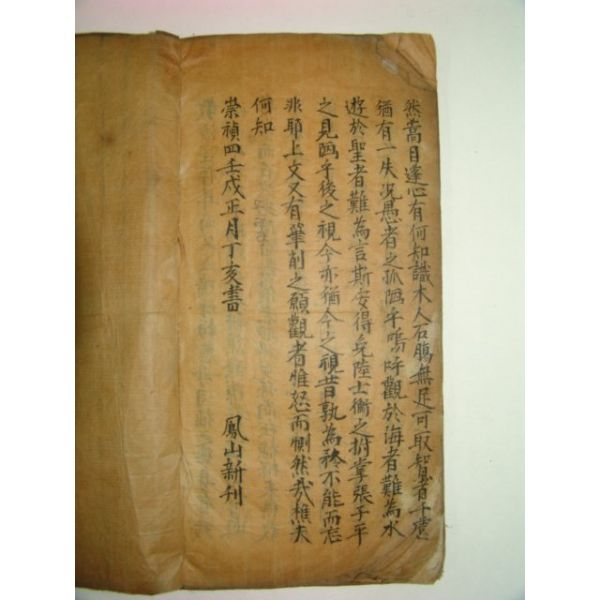 然蒿目蓬心有何知識木人石膓無足可取知者千慮
猶有一失況愚者之孤陋乎嗚呼觀於海者難為水
遊於聖者難為言斯安得免陸士衡之拊掌張子平
之見陋乎後之視今亦猶今之視昔孰為矜不能而忘
非耶上文又有筆削之願觀者惟恕而惻然哉樵夫
何知
崇禎四壬戌正月丁亥書 鳳山新刊